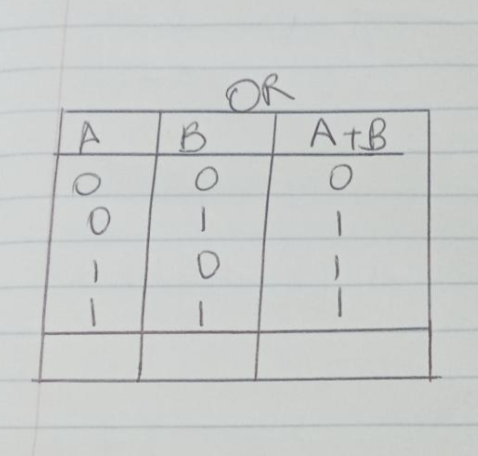 OR
A B A+B
0 0 0
0 1 1
1 0 1
1 1 1